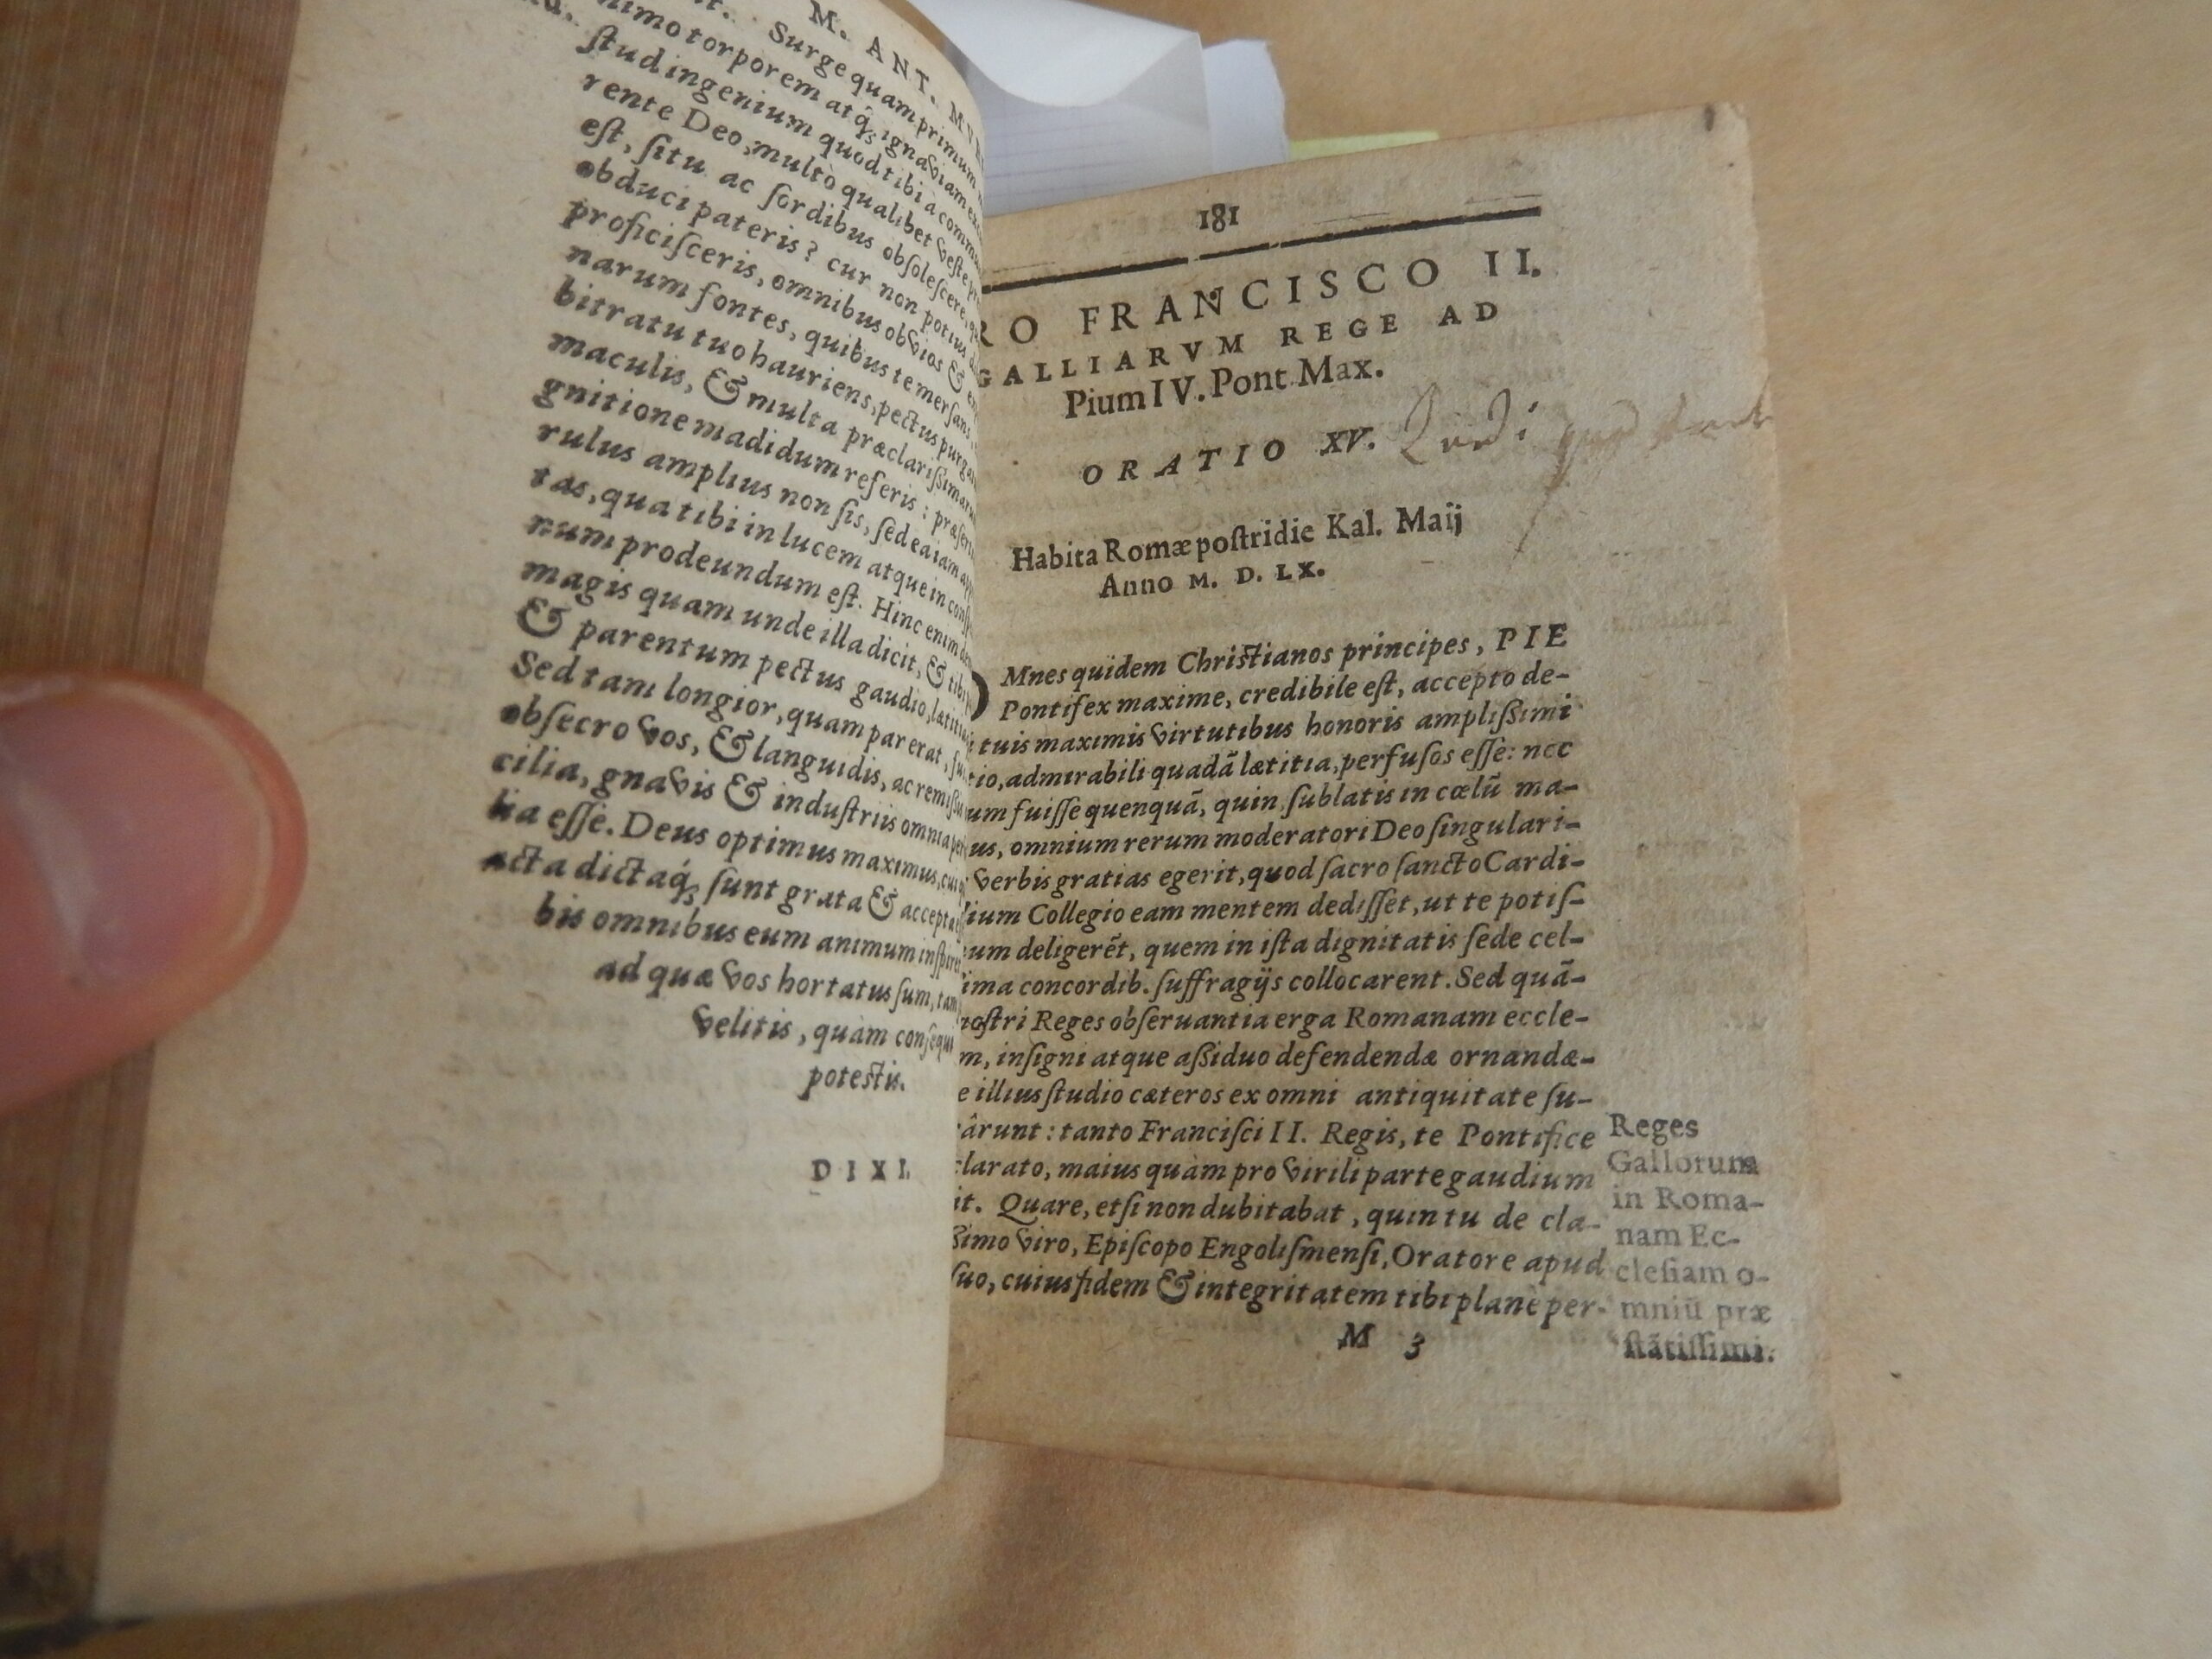 M. ANT. MV
Surge quam primum
nimo torporem atq́; ignaviam
ſtud ingenium quod tibi a
rente Deo, multò qualibet veſte
eſt, ſitu ac ſordibus obſoleſcere,
obduci pateris? cur non potius
proficiſceris, omnibus obvios &
narum fontes, quibus te merſans,
bitratu tuo hauriens, pectus
maculis, & multa
gnitione madidum referis:
rulus amplius non ſis, ſed ea iam
tas, qua tibi in lucem atque in
num prodeundum eſt. Hinc enim
magis quam unde illa dicit, &
& parentum pectus gaudio,
Sed iam longior, quam par erat,
obſecro vos, & languidis, ac
cilia, gnavis & induſtriis omnia
lia eſſe. Deus optimus maximus,
acta dictaq́; ſunt grata &
bis omnibus eum animum
ad quæ vos hortatus ſum, tam
velitis, quàm
poteſtis.
DIXI.
181
RO FRANCISCO II.
GALLIARVM REGE AD
Pium IV. Pont. Max.
ORATIO XV.
Habita Romæ poſtridie Kal. Maij
Anno M. D. LX.
Mnes quidem Chriſtianos principes, PIE
Pontifex maxime, credibile eſt, accepto de-
tuis maximis virtutibus honoris ampliſsimi
tio, admirabili quadā lætitia, perfuſos eſſe: nec
um fuiſſe quenquā, quin ſublatis in cœlū ma-
us, omnium rerum moderatori Deo ſingulari-
verbis gratias egerit, quod ſacro ſancto Cardi-
lium Collegio eam mentem dediſſet, ut te potiſ-
um deligerēt, quem in iſta dignitatis ſede cel-
ima concordib. ſuffragijs collocarent. Sed quā-
noſtri Reges obſeruantia erga Romanam eccle-
m, inſigni atque aſsiduo defendendæ ornandæ-
e illius ſtudio cæteros ex omni antiquitate ſu-
rârunt: tanto Franciſci II. Regis, te Pontifice
clarato, maius quàm pro virili parte gaudium
it. Quare, etſi non dubitabat, quin tu de cla-
ſsimo viro, Epiſcopo Engoliſmenſi, Oratore apud
ſuo, cuius fidem & integritatem tibi planè per-
M 3
Reges
Gallorum
in Roma-
nam Ec-
cleſiam o-
mniū præ
ſtātiſſimi.